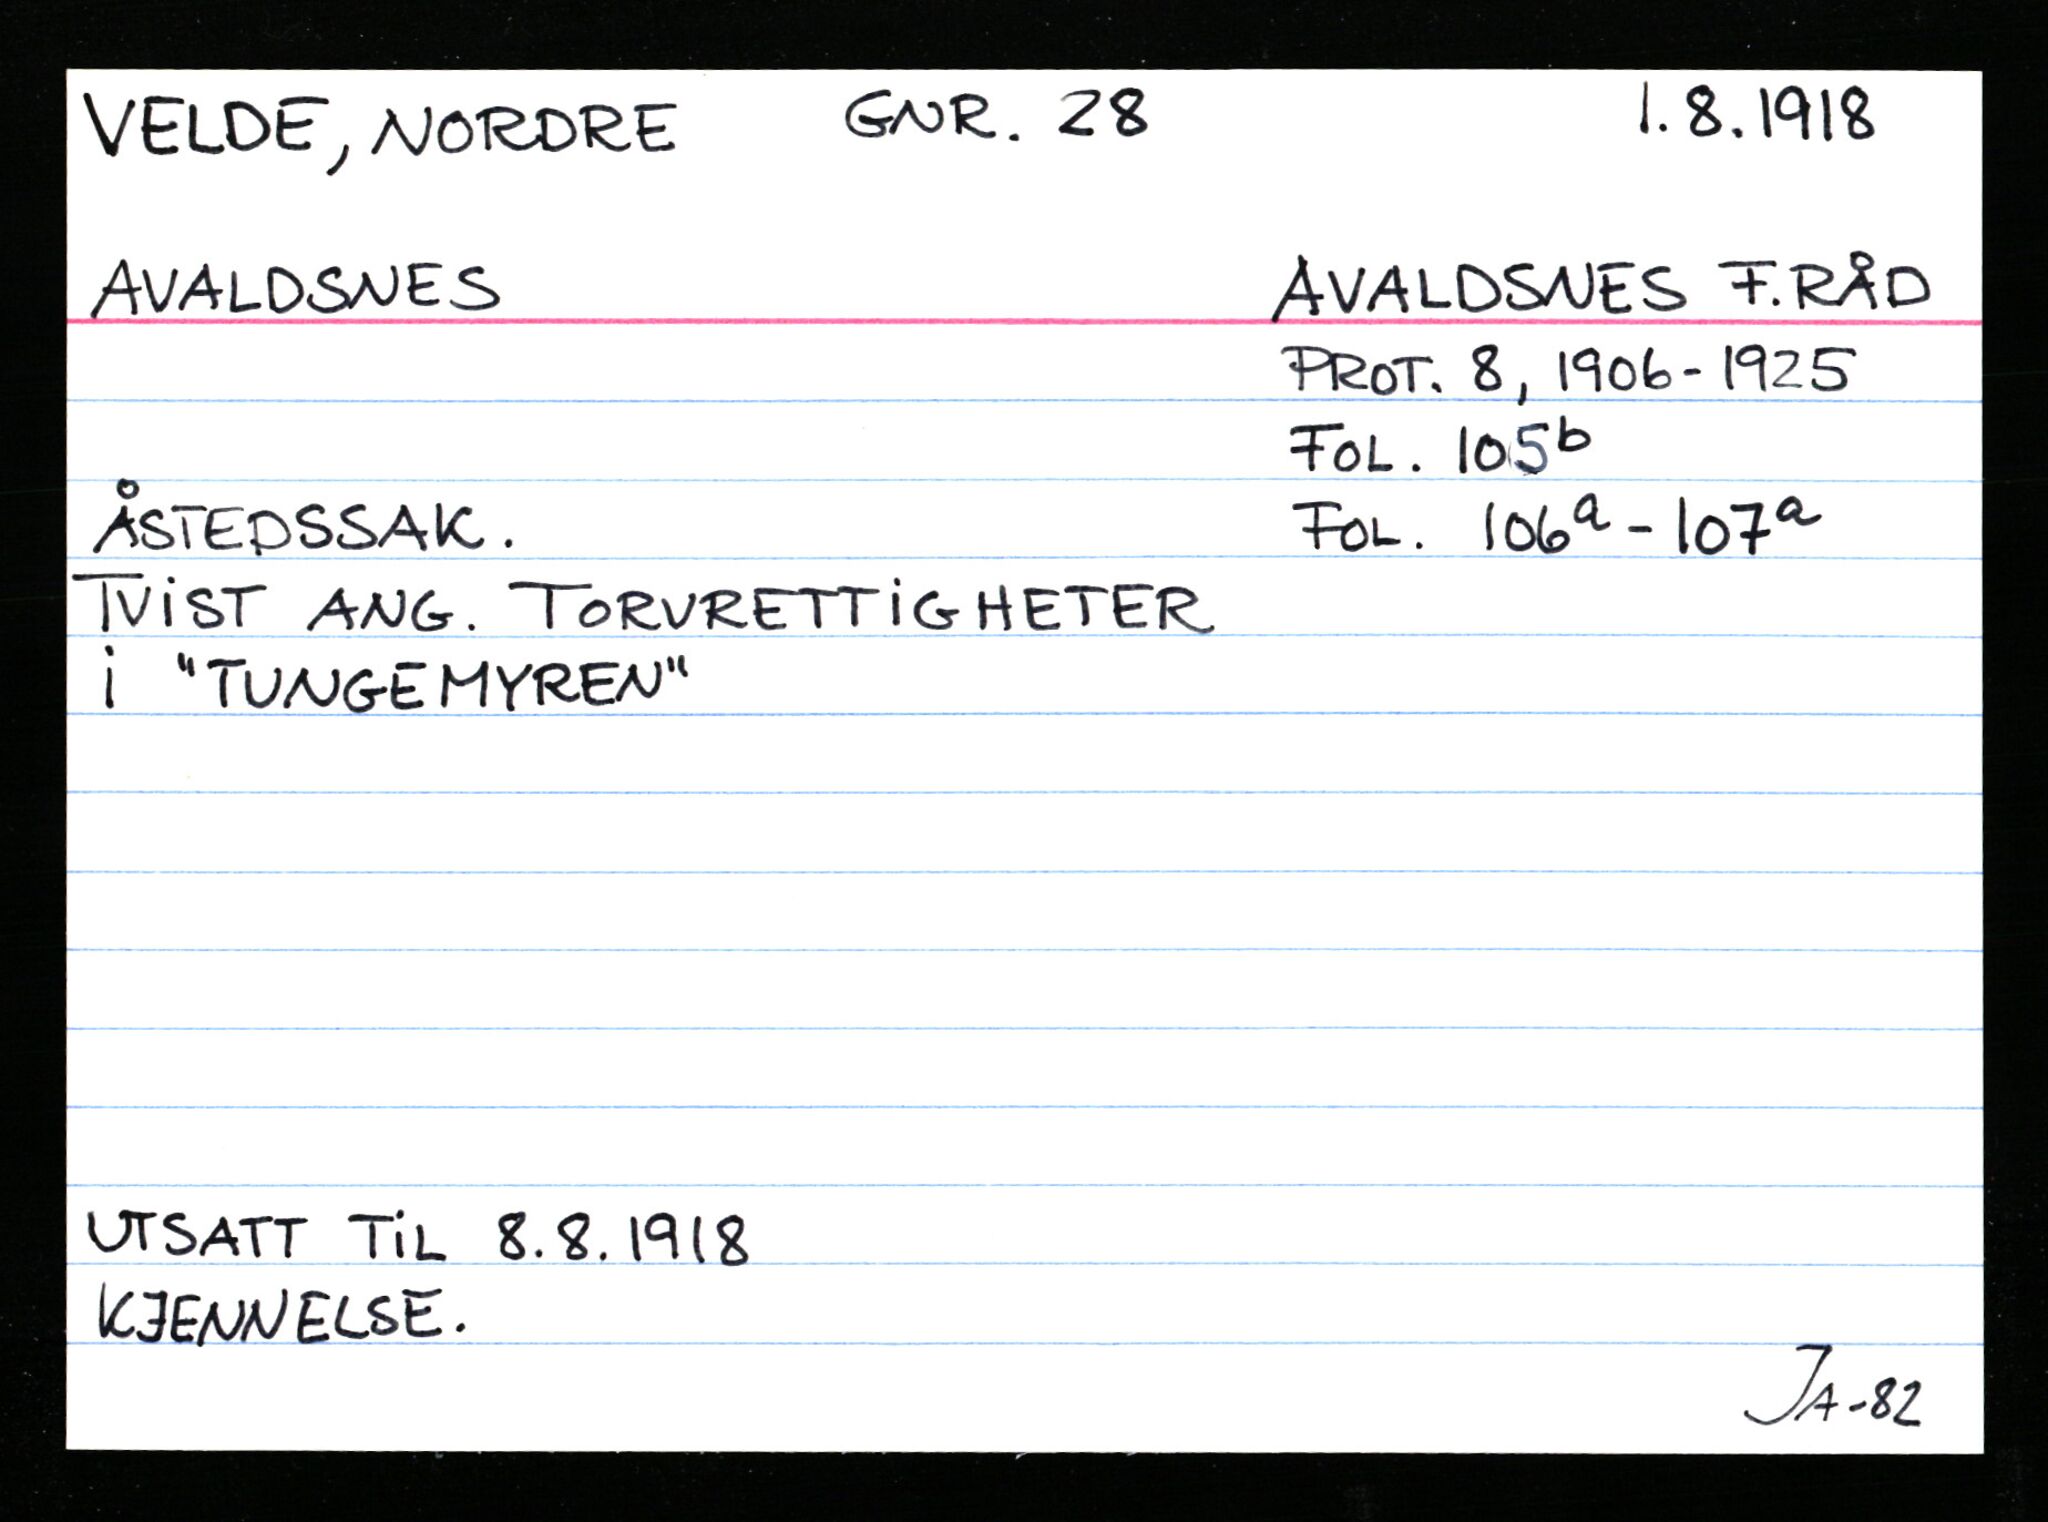 VELDE, NORDRE GNR. 28 1.8.1918
AVALDSNES AVALDSNES F.RÅD
PROT. 8, 1906-1925
FOL. 105b
ÅSTEDSSAK. FOL. 106a - 107a
TViST ANG. TORVRETTiGHETER
i "TUNGEMYREN"
UTSATT TiL 8.8.1918
KJENNELSE.
JA-82